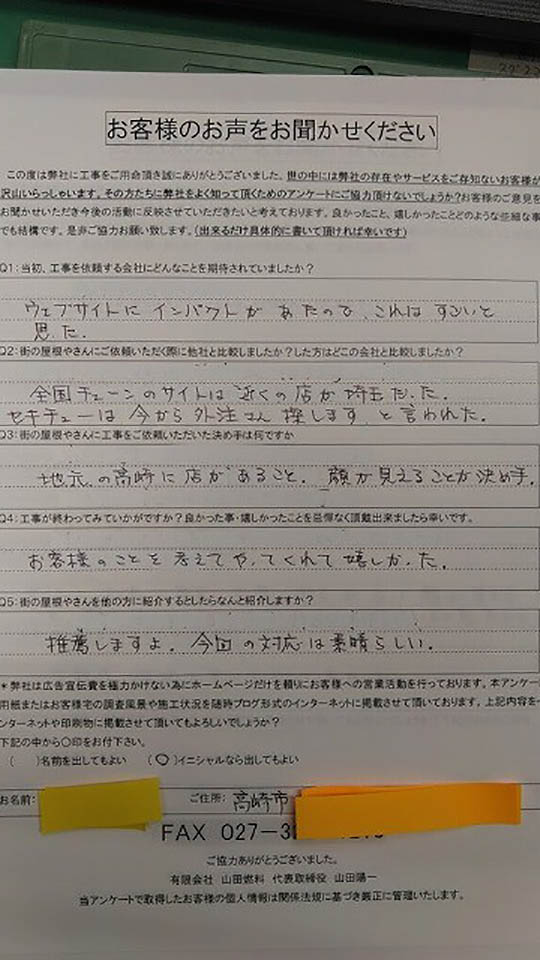 お客様のお声をお聞かせください
この度は弊社に工事をご用命頂き誠にありがとうございました。世の中には弊社の存在やサービスをご存知ないお客様が
沢山いらっしゃいます。その方たちに弊社をよく知って頂くためのアンケートにご協力頂けないでしょうか?お客様のご意見を
お聞かせいただき今後の活動に反映させていただきたいと考えております。良かったこと、嬉しかったことどのような些細な事
でも結構です。是非ご協力お願い致します。(出来るだけ具体的に書いて頂ければ幸いです)
Q1:当初、工事を依頼する会社にどんなことを期待されていましたか?
ウェブサイトに インパクトが あたので、これは すごいと
思った。
Q2:街の屋根やさんにご依頼いただく際に他社と比較しましたか?した方はどこの会社と比較しましたか?
全国チェーンのサイトは 近くの店が 埼玉だった。
セキチューは 今から 外注さん 探します と言われた。
Q3:街の屋根やさんに工事をご依頼いただいた決め手は何ですか
地元の高崎に店があること。顔が見えることが決め手。
Q4:工事が終わってみていかがですか?良かった事・嬉しかったことを忌憚なく頂戴出来ましたら幸いです。
お客様のことを考えてやってくれて嬉しかった。
Q5:街の屋根やさんを他の方に紹介するとしたらなんと紹介しますか?
推薦しますよ。今回の対応は素晴らしい。
*弊社は広告宣伝費を極力かけない為にホームページだけを頼りにお客様への営業活動を行っております。本アンケー
用紙またはお客様宅の調査風景や施工状況を随時ブログ形式のインターネットに掲載させて頂いております。上記内容を
ンターネットや印刷物に掲載させて頂いてもよろしいでしょうか?
下記の中から○印をお付下さい。
( )名前を出してもよい (○)イニシャルなら出してもよい
お名前: ご住所: 高崎市
FAX 027-3
ご協力ありがとうございました。
有限会社 山田燃料 代表取締役 山田陽一
当アンケートで取得したお客様の個人情報は関係法規に基づき厳正に管理いたします。